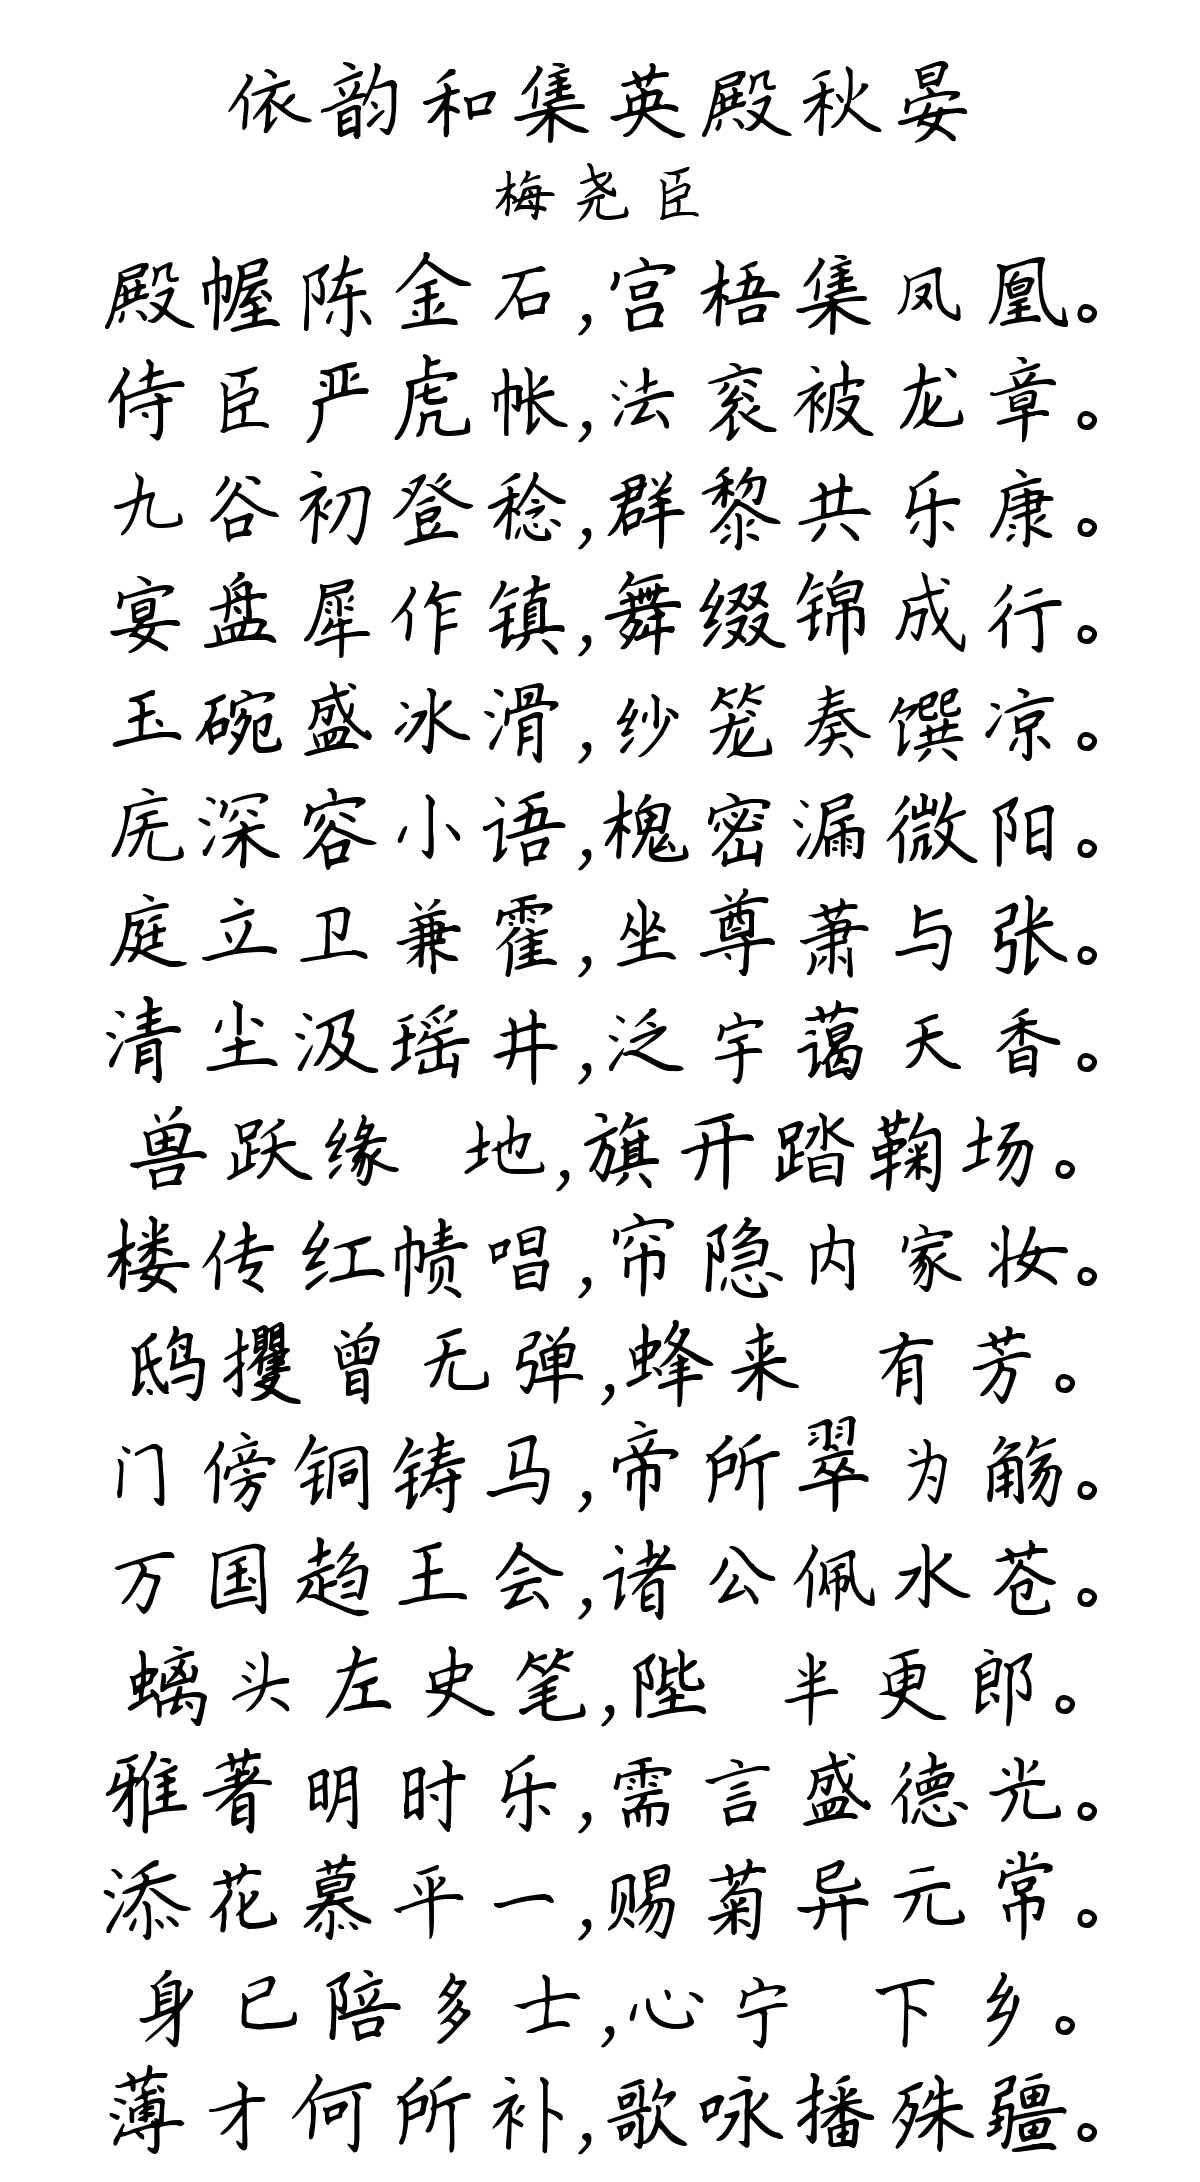 依韵和集英殿秋晏
梅尧臣
殿幄陈金石,宫梧集凤凰。
侍臣严虎帐,法衮被龙章。
九谷初登稔,群黎共乐康。
宴盘犀作镇,舞缀锦成行。
玉碗盛冰滑,纱笼奏馔凉。
庑深容小语,槐密漏微阳。
庭立卫兼霍,坐尊萧与张。
清尘汲瑶井,泛宇蔼天香。
兽跃缘 地,旗开踏鞠场。
楼传红帻唱,帘隐内家妆。
鸱攫曾无弹,蜂来 有芳。
门傍铜铸马,帝所翠为觞。
万国趋王会,诸公佩水苍。
螭头左史笔,陛 半更郎。
雅著明时乐,需言盛德光。
添花慕平一,赐菊异元常。
身已陪多士,心宁 下乡。
薄才何所补,歌咏播殊疆。